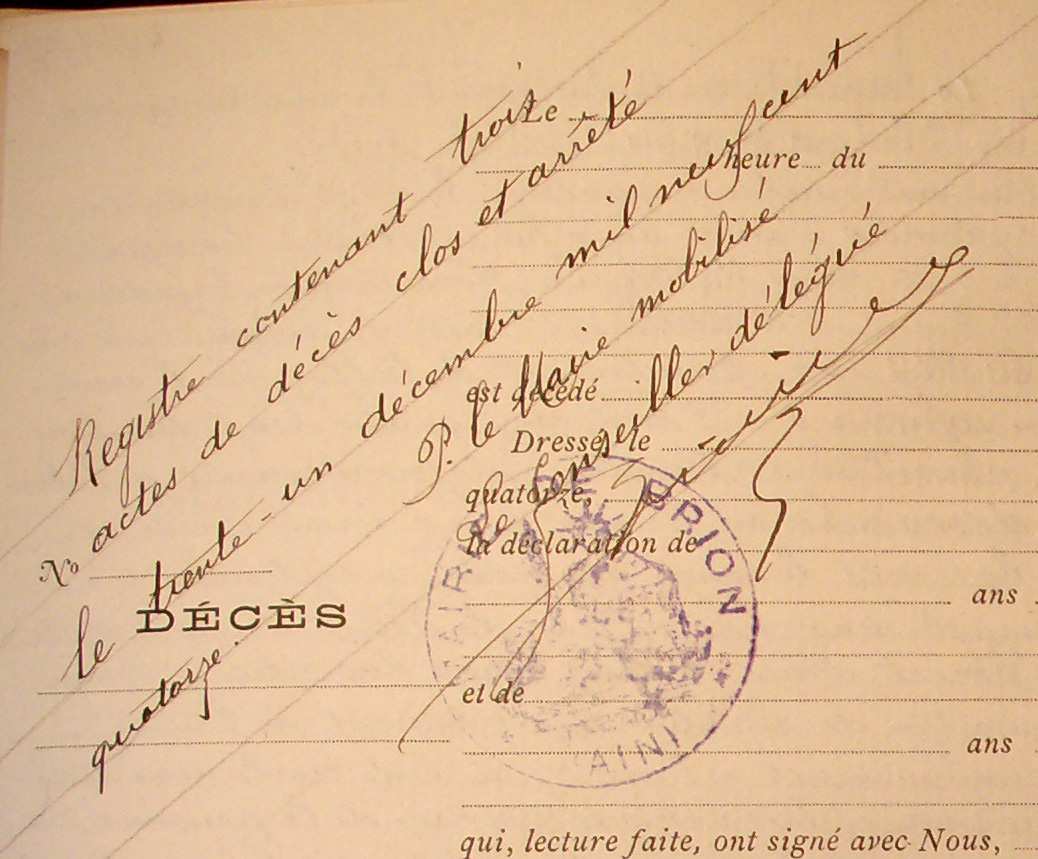 Registre contenant trois
actes de décès clos et arrêté
le trente-un décembre mil neuf cent
quatorze.
P. le Maire mobilisé
Le Conseiller délégué
Le
heure du
est décédé
Dressé le
quatorze,
la déclaration de
ans
et de
ans
qui, lecture faite, ont signé avec Nous,
No
DÉCÈS
MAIRIE DE BRION
(AIN)